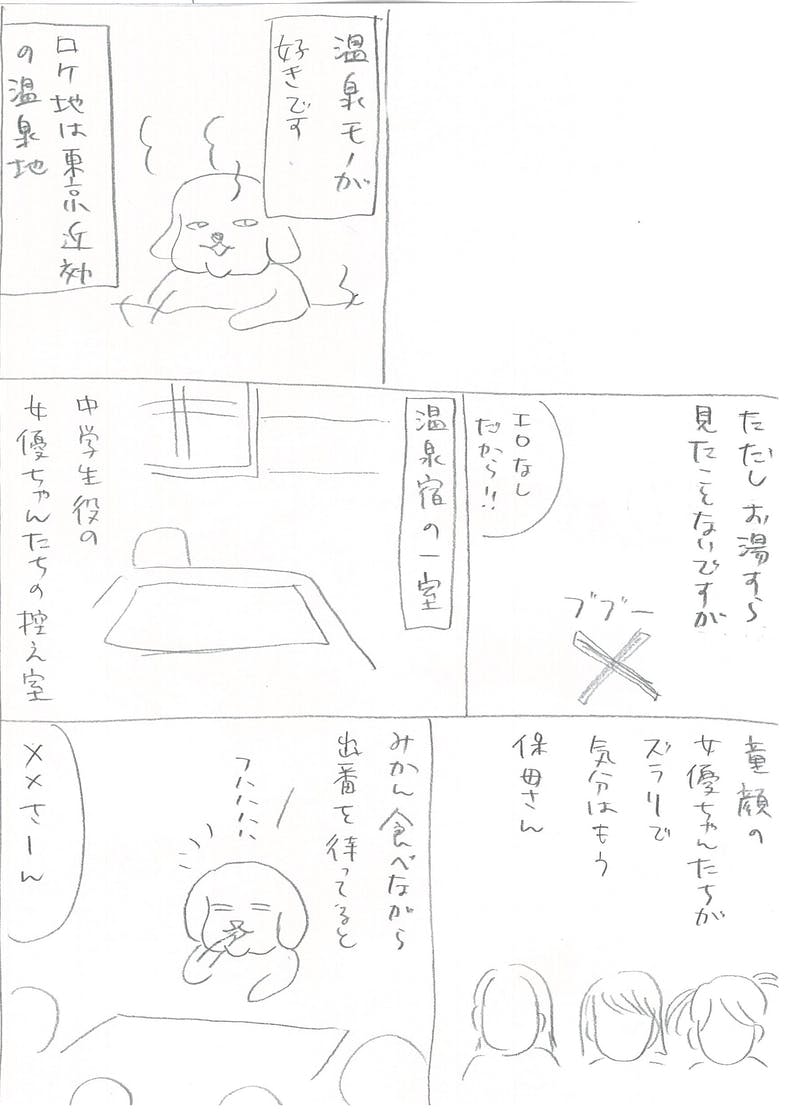 温泉モノが
好きです
ロケ地は東京近効
の温泉地
ただし お湯すら
見たことないですが
ブブー
エロなし
だから!!
温泉宿の一室
中学生役の
女優ちゃんたちの控え室
童顔の
女優ちゃんたちが
ズラリで
気分はもう
保母さん
みかん食べながら
出番を待ってると
フハハハハ
××さーん